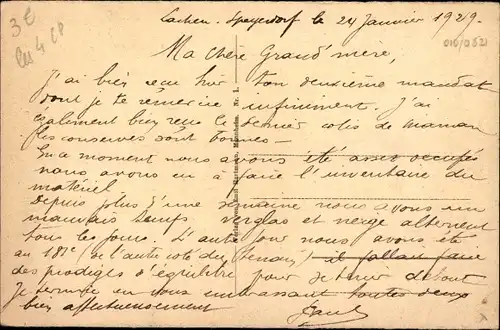 3€
les 4 CP
Lachen-Speyerdorf le 24 Janvier 1929.
010/0521
Ma chère Grand'mère,
J'ai bien reçu hier ton deuxième mandat
dont je te remercie infiniment. J'ai
également bien reçu le dernier colis de maman
les conserves sont bonnes —
En ce moment nous avons été assez occupés
nous avons eu à faire l'inventaire du
matériel
Depuis plus d'une semaine nous avons un
mauvais temps verglas et neige alternent
tous les jours. L'autre jour nous avons été
au 18e (de l'autre côté du terrain) il fallait faire
des prodiges d'équilibre pour se tenir debout
Je termine en vous embrassant toutes deux
bien affectueusement
Paul
Mannheim. Nr. 1.